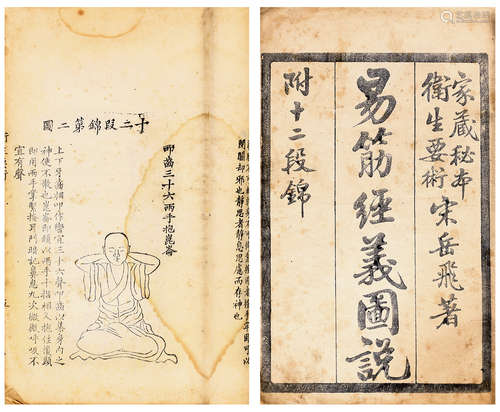 家藏秘本
衛生要術
宋岳飛著
易筋經義圖說
附十二段錦
閉關却邪也靜思者靜息思慮而存神也
十二段錦第二圖
叩齒三十六兩手抱崑崙
上下牙齒相叩作響宜三十六聲叩齒以集身內之
神使不散也崑崙即頭以兩手十指相叉抱住後頸
即用兩手掌緊掩耳門暗記鼻息九次微微呼吸不
宜有聲